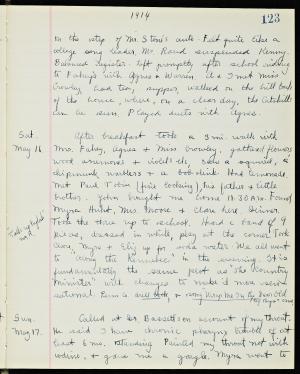 1914
123
on the step of Mr. Stone's auto. Felt quite like a
college song leader. Mr. Rand suspended Henry.
Balanced register. Left promptly after school riding
to Fahey's with Agnes & Warren. A & I met Miss
Crowley, had tea, supper, walked on the hill back
of the house, where, on a clear day, the Catskills
can be seen. Played duets with Agnes.
Sat.
May 16
After breakfast took a 3 mi. walk with
Mrs. Fahey, Agnes & Miss Crowley, gathered flowers
wood anemones & violets etc, saw a squirrel, a
chipmunk, warblers & a bobolink. Had lemonade.
Met Paul Tobin (fine looking), his father & little
brother. John brought me home 11:30 A.M. Found
Myra Hunt, Mrs. Moore & Clara here. Dinner.
Took the three up to school. Heard a band of 9
pieces, dressed in white, play at the corner. Took
Clara, Myra & Eliz up for soda water. We all went
to "Along the Kennebec" in the evening. It is
fundamentally the same plot as "The Country
Minister" with changes to make it more
sational.
Sun.
May 17.
Called at Dr. Bassett's on account of my throat.
He said I have chronic pharyngeal trouble of at
least 6 mos. standing. Painted my throat with
iodine, & gave me a gargle. Myra went to